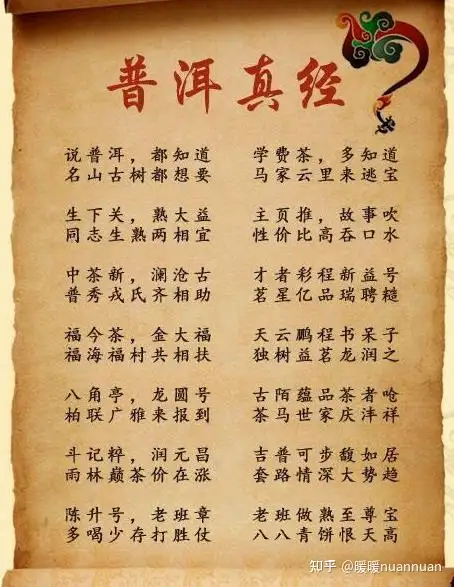 普洱真经
说普洱，都知道
名山古树都想要
生下关，熟大益
同志生熟两相宜
中茶新，澜沧古
普秀戎氏齐相助
福今茶，金大福
福海福村共相扶
八角亭，龙圆号
柏联广雅来报到
斗记粹，润元昌
雨林巅茶价在涨
陈升号，老班章
多喝少存打胜仗
学费茶，多知道
马家云里来逃宝
主页推，故事吹
性价比高吞口水
才者彩程新益号
茗星亿品瑞聘糙
天云鹏程书呆子
独树益茗龙润之
古陌蕴品茶者呛
茶马世家庆沣祥
吉普可步馥如居
套路情深大势趋
老班做熟至尊宝
八八青饼恨天高
知乎 @暖暖nuannuan